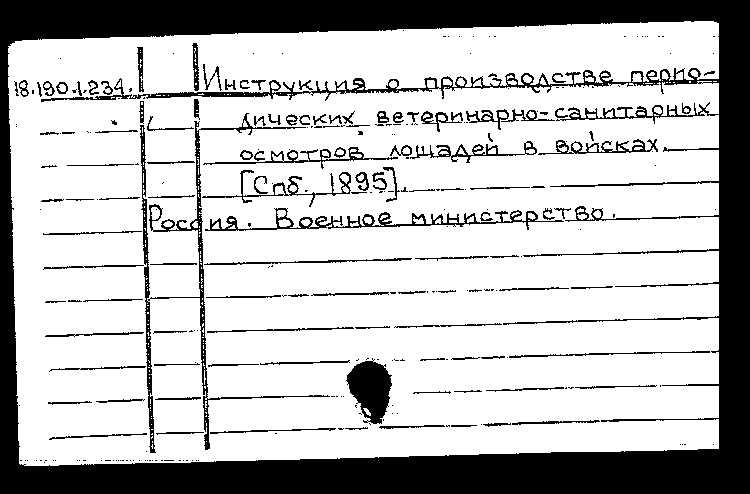 18.190.1.234. Инструкция о производстве перио-
дических ветеринарно-санитарных
осмотров лошадей в войсках.
[Спб., 1895].
Россия. Военное министерство.